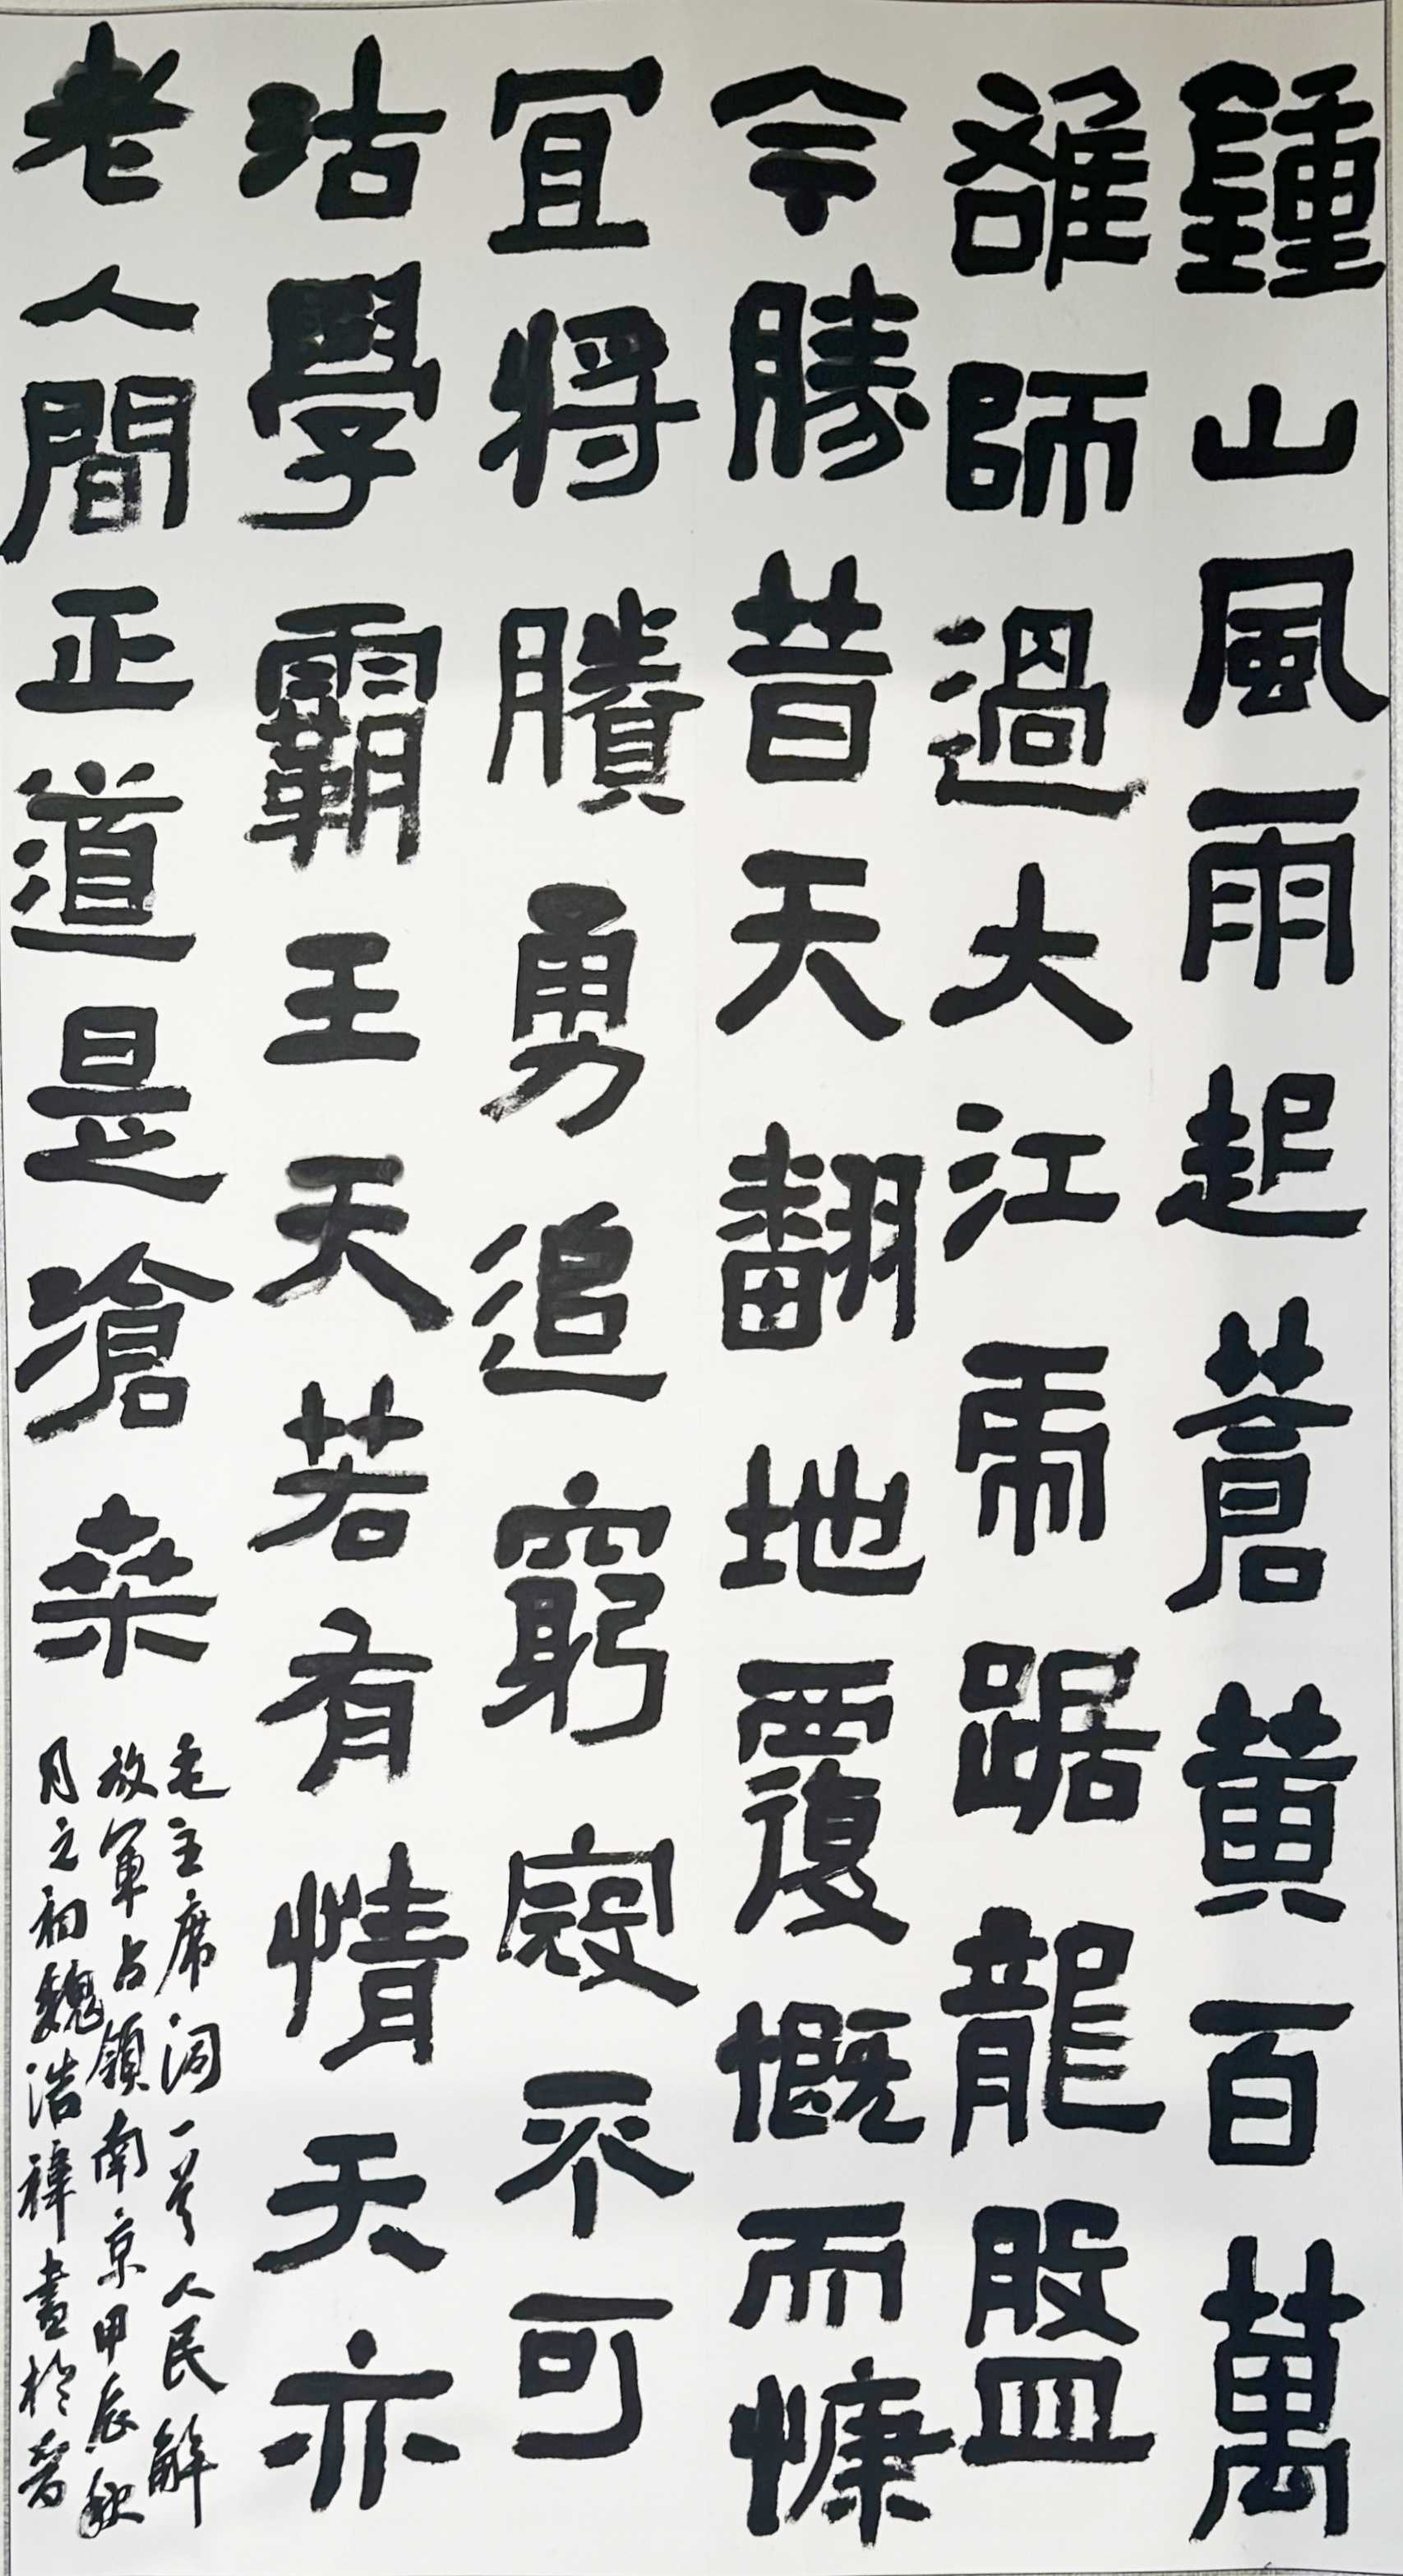 鍾山風雨起蒼黄百萬
雄師過大江虎踞龍盤
今勝昔天翻地覆慨而慷
冝将賸勇追窮寇不可
沽學霸王天若有情天亦
老人間正道是滄桒
毛主席詞一首人民解
放軍占領南京甲辰秋
月之初魏浩禕書於晉